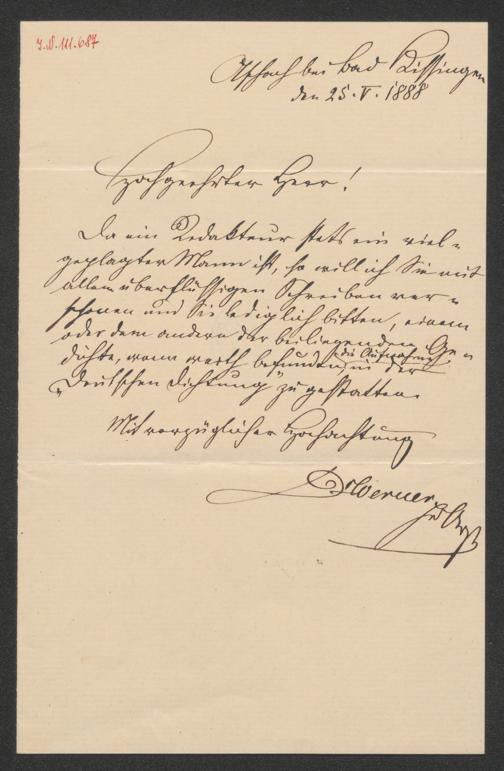 J.N. 111.687
Aschach bei Bad Kissingen
den 25. V. 1888
Hochgeehrter Herr!
Da ein Redakteur stets ein viel-
geplagter Mann ist, so will ich Sie mit
allem überflüssigen Schreiben ver-
schonen und Sie lediglich bitten, einem
oder dem andern der beiliegenden Ge-
dichte, wenn werth befunden, die Aufnahme in der
"Deutschen Dichtung" zu gestatten.
Mit vorzüglicher Hochachtung
Dr Werner